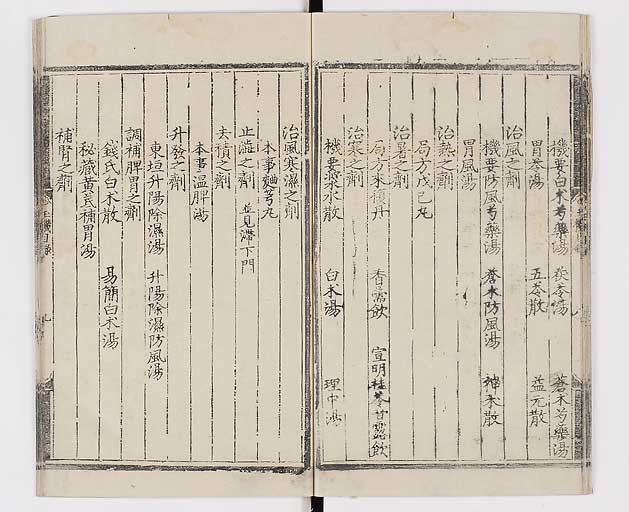 機要白朮芍藥湯 茯苓湯 蒼朮芍藥湯
胃苓湯 五苓散 益元散
治風之劑
機要防風芍藥湯 蒼朮防風湯 神朮散
胃風湯
治熱之劑
局方戊己丸
治暑之劑
局方來復丹 香薷飲 宣明桂苓甘露飲
治寒之劑
機要漿水散 白朮湯 理中湯
治風寒濕之劑
本事麯芎丸
止澁之劑 並見滯下門
去積之劑
本事溫脾湯
升發之劑
東垣升陽除濕湯 升陽除濕防風湯
調補脾胃之劑
錢氏白朮散 易簡白朮湯
秘藏黃芪補胃湯
補腎之劑